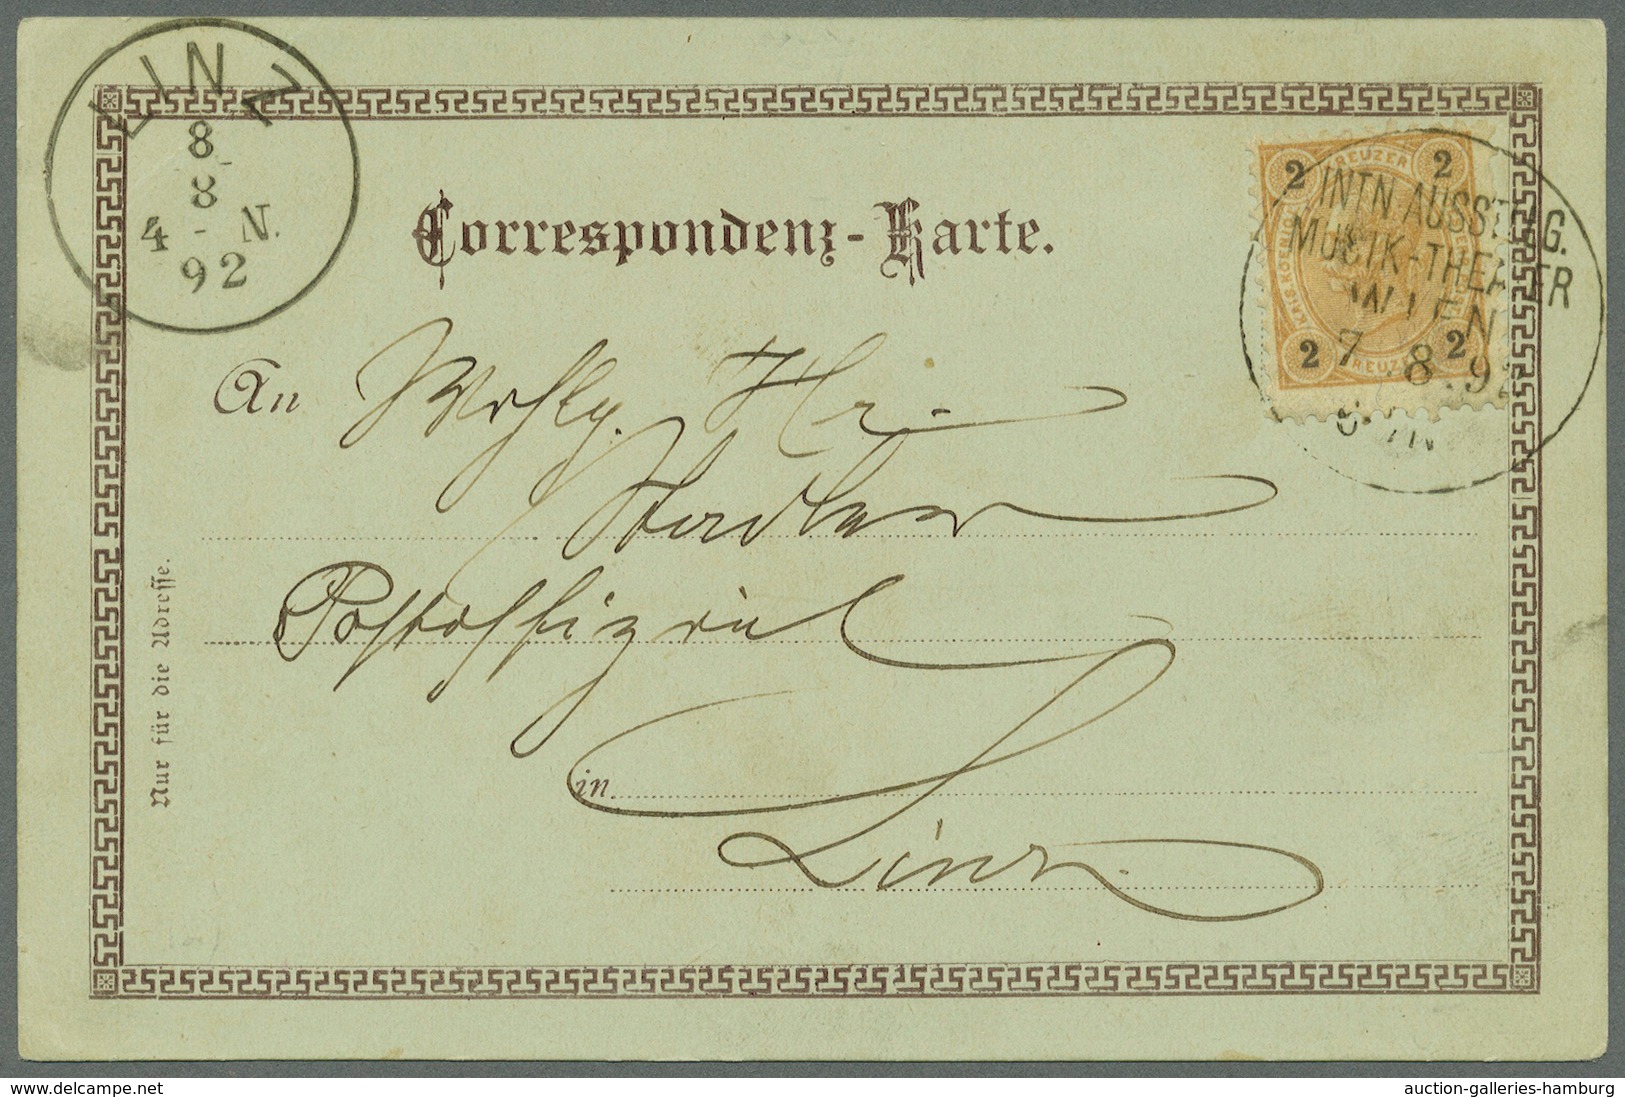 LINZ
8
8
4 - N.
92
Correspondenz-Karte.
2 KREUZER 2
2 KREUZER 2
INTN AUSSTLLG.
MUSIK-THEATER
WIEN
7.8.92
An Wohlg. Hr.
Postoffizial
in
Linz.
Nur für die Adresse.
www.delcampe.net
auction-galleries-hamburg